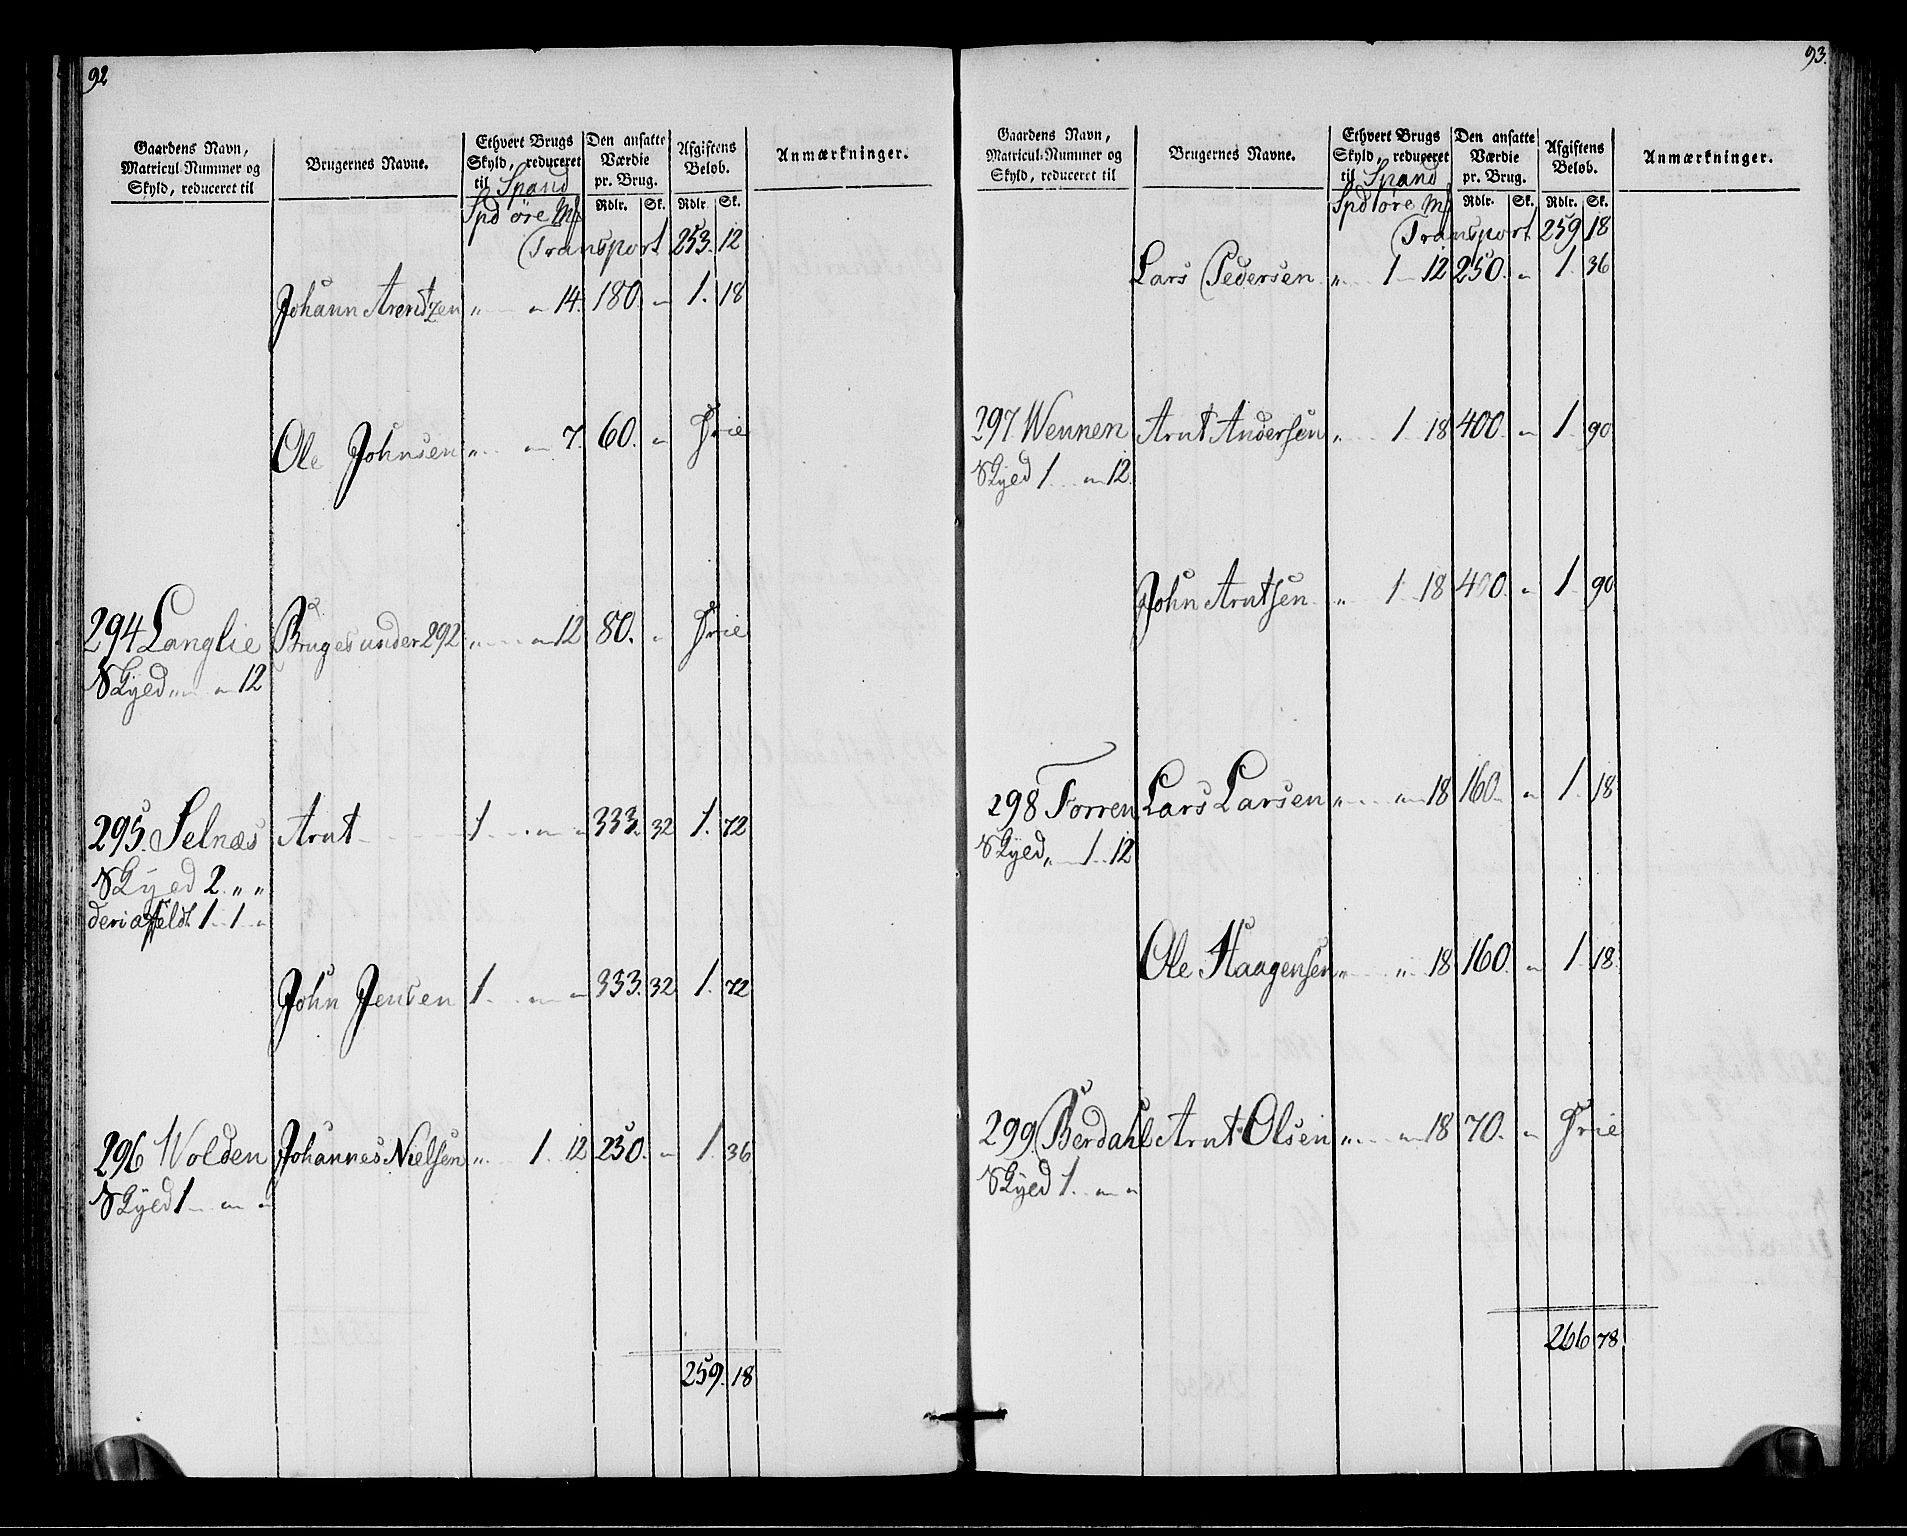 92
Gaardens Navn, Matricul-Nummer og Skyld, reduceret til
Brugernes Navne.
Ethvert Brugs Skyld, reduceret til Spand
Den ansatte Værdie pr. Brug.
Afgiftens Beløb.
Anmærkninger.
Spd øre Mf Rdlr. Sk. Rdlr. Sk.
Transport 253. 12
Johann Arentzen „ „ 14. 180. „ 1. 18
Ole Johnsen „ „ 7. 60. „ Frie
294 Langlie Bruges under 292 „ „ 12 80. „ Frie
Skyed „ „ 12
295. Selnæs Arnt 1 „ „ 333. 32 1. 72
Skyed 2. „ „
deriaffeldt 1 1 „
John Jensen 1. „ „ 333. 32 1. 72
296 Wolden Johannes Nielsen „ 1. 12 250. „ 1. 36
Skyed 1 „ „
259. 18
93.
Gaardens Navn, Matricul-Nummer og Skyld, reduceret til
Brugernes Navne.
Ethvert Brugs Skyld, reduceret til Spand
Den ansatte Værdie pr. Brug.
Afgiftens Beløb.
Anmærkninger.
Spd øre Mf Rdlr. Sk. Rdlr. Sk.
Transport 259 18
Lars Pedersen „ 1 12 250. „ 1. 36
297 Wennen Arnt Andersen „ 1 18 400. „ 1. 90
Skyed 1. „ 12.
John Arntsen „ 1 18 400. „ 1. 90
298 Forren Lars Larsen „ „ 18 160 „ 1. 18
Skyed „ 1. 12
Ole Haagensen „ „ 18 160. „ 1. 18.
299. Berdahl Arnt Olsen „ „ 18 70. „ Frie
Skyed 1. „ „
266 78.